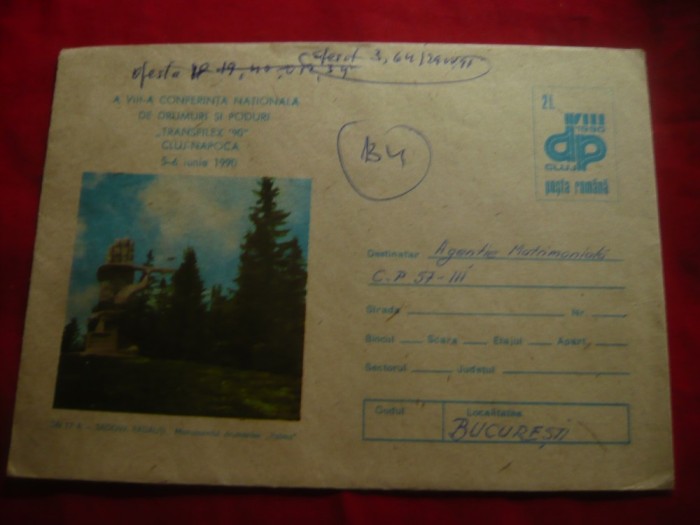 oferta
3,64/29
A VIII-A CONFERINTA NATIONALA
DE DRUMURI SI PODURI
„TRANSFLEX '90"
CLUJ-NAPOCA
5-6 iunie 1990
B4
2L
VIII
1990
dp
CLUJ
poşta română
Destinatar Agenţie Matrimonială
C.P 57-III
Strada Nr.
Blocul Scara Etajul Apart.
Sectorul Judeţul
Codul Localitatea
BUCUREŞTI
Monumentul drumarilor